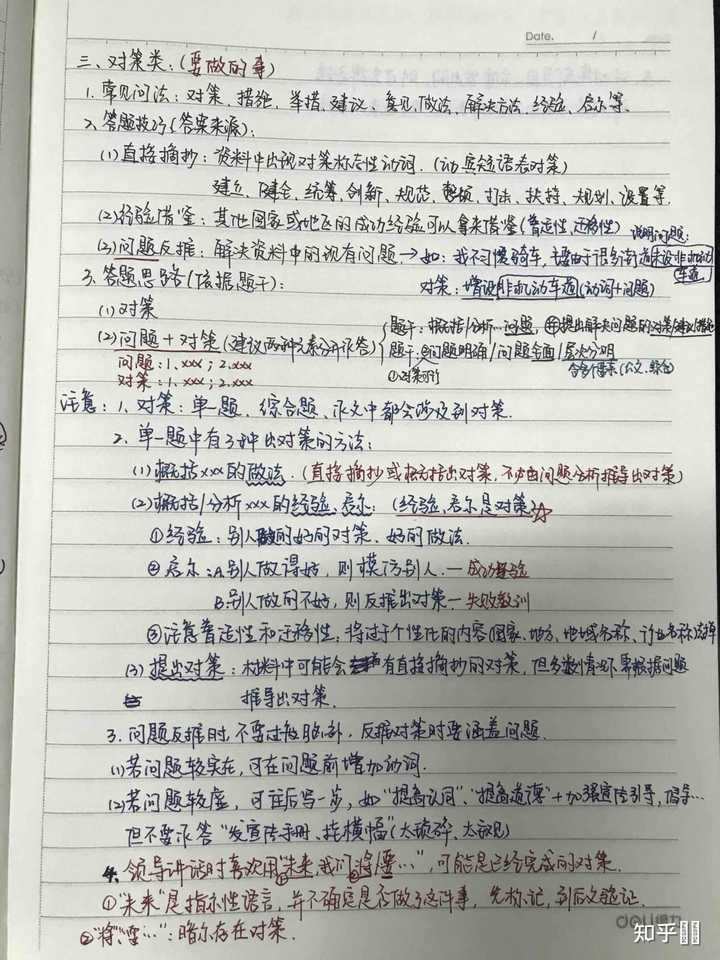 Date. /
三、对策类：(要做的事)
1. 常见问法：对策、措施、举措、建议、意见、做法、解决方法、经验、启示等.
2. 答题技巧(答案来源)：
(1)直接摘抄：资料中出现对策标志性动词.(动宾短语表对策)
建立、健全、统筹、创新、规范、整顿、打击、扶持、规划、设置等.
(2)经验借鉴：其他国家或地区的成功经验可以拿来借鉴(普适性、迁移性)
说明问题：
(3)问题反推：解决资料中的现有问题→如：我不习惯骑车,主要由于很多街道未设非机动车道
3. 答题思路(依据题干)：
对策：增设非机动车道(动词+问题)
(1)对策
(2)问题+对策(建议两种元素分开作答)
题干：概括/分析…问题,并提出解决问题的对策/建议/措施
题干：②问题明确/问题全面/层次分明
问题：1.xxx；2.xxx
①对策可行
对策：1.xxx；2.xxx
注意：1、对策：单一题、综合题、公文中都会涉及到对策.
2、单一题中有3种出对策的方法：
(1)概括xxx的做法.(直接摘抄或概括出对策,不由问题分析推导出对策)
(2)概括/分析xxx的经验、启示：(经验、启示是对策)☆
①经验：别人做的好的对策、好的做法.
②启示：A.别人做得好,则模仿别人.—成功经验
B.别人做的不好,则反推出对策—失败教训
③注意普适性和迁移性：将过于个性化的内容(国家、地方、地域名称、行业名称
(3)提出对策：材料中可能会有直接摘抄的对策,但多数情况下需根据问题
推导出对策.
3.问题反推时,不要过激脑补,反推对策时要涵盖问题
(1)若问题较实在,可在问题前增加动词.
(2)若问题较虚,可往后写一步,如"提高认识"、"提高道德"+加强宣传引导,倡导…
但不要求答"发宣传手册、挂横幅"(太琐碎、太微观)
4. 领导讲话时喜欢用"未来,我们将/要…",可能是已经完成的对策.
①"未来"是指示性语言,并不确定是否做了这件事,先标记,到后文验证.
②"将""要…"：暗示存在对策.
deli得力
知乎